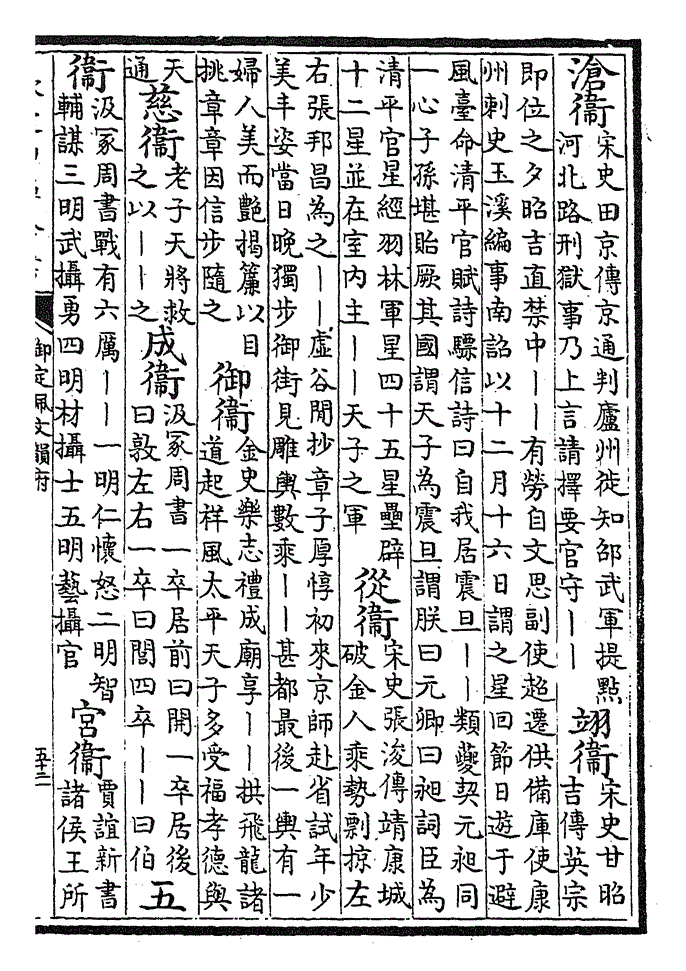 滄衞
宋史田京傳京通判廬州徙知邵武軍提點
河北路刑獄事乃上言請擇要官守丨丨
翊衞
宋史甘昭
吉傳英宗
即位之夕昭吉直禁中丨丨有勞自文思副使超遷供備庫使康
州刺史玉溪編事南詔以十二月十六日謂之星回節日遊于避
風臺命清平官賦詩驃信詩曰自我居震旦丨丨類夔契元昶同
一心子孫堪貽厥其國謂天子為震旦謂朕曰元卿曰昶詞臣為
清平官星經羽林軍星四十五星壘辟
十二星並在室内主丨丨天子之軍
從衞
宋史張浚傳靖康城
破金人乘勢剽掠左
右張邦昌為之丨丨虛谷閒抄章子厚惇初來京師赴省試年少
美丰姿當日晚獨步御街見雕輿數乘丨丨甚都最後一輿有一
婦人美而艷揭簾以目
挑章章因信步隨之
御衞
金史樂志禮成廟享丨丨拱飛龍諸
道起祥風太平天子多受福孝德與
天
通
慈衞
老子天將救
之以丨丨之
成衞
汲冢周書一卒居前曰開一卒居後
曰敦左右一卒曰閭四卒丨丨曰伯
五
衞
汲冢周書戰有六厲丨丨一明仁懷怒二明智
輔謀三明武攝勇四明材攝士五明藝攝官
宮衞
賈誼新書
諸侯王所
御定佩文韻府